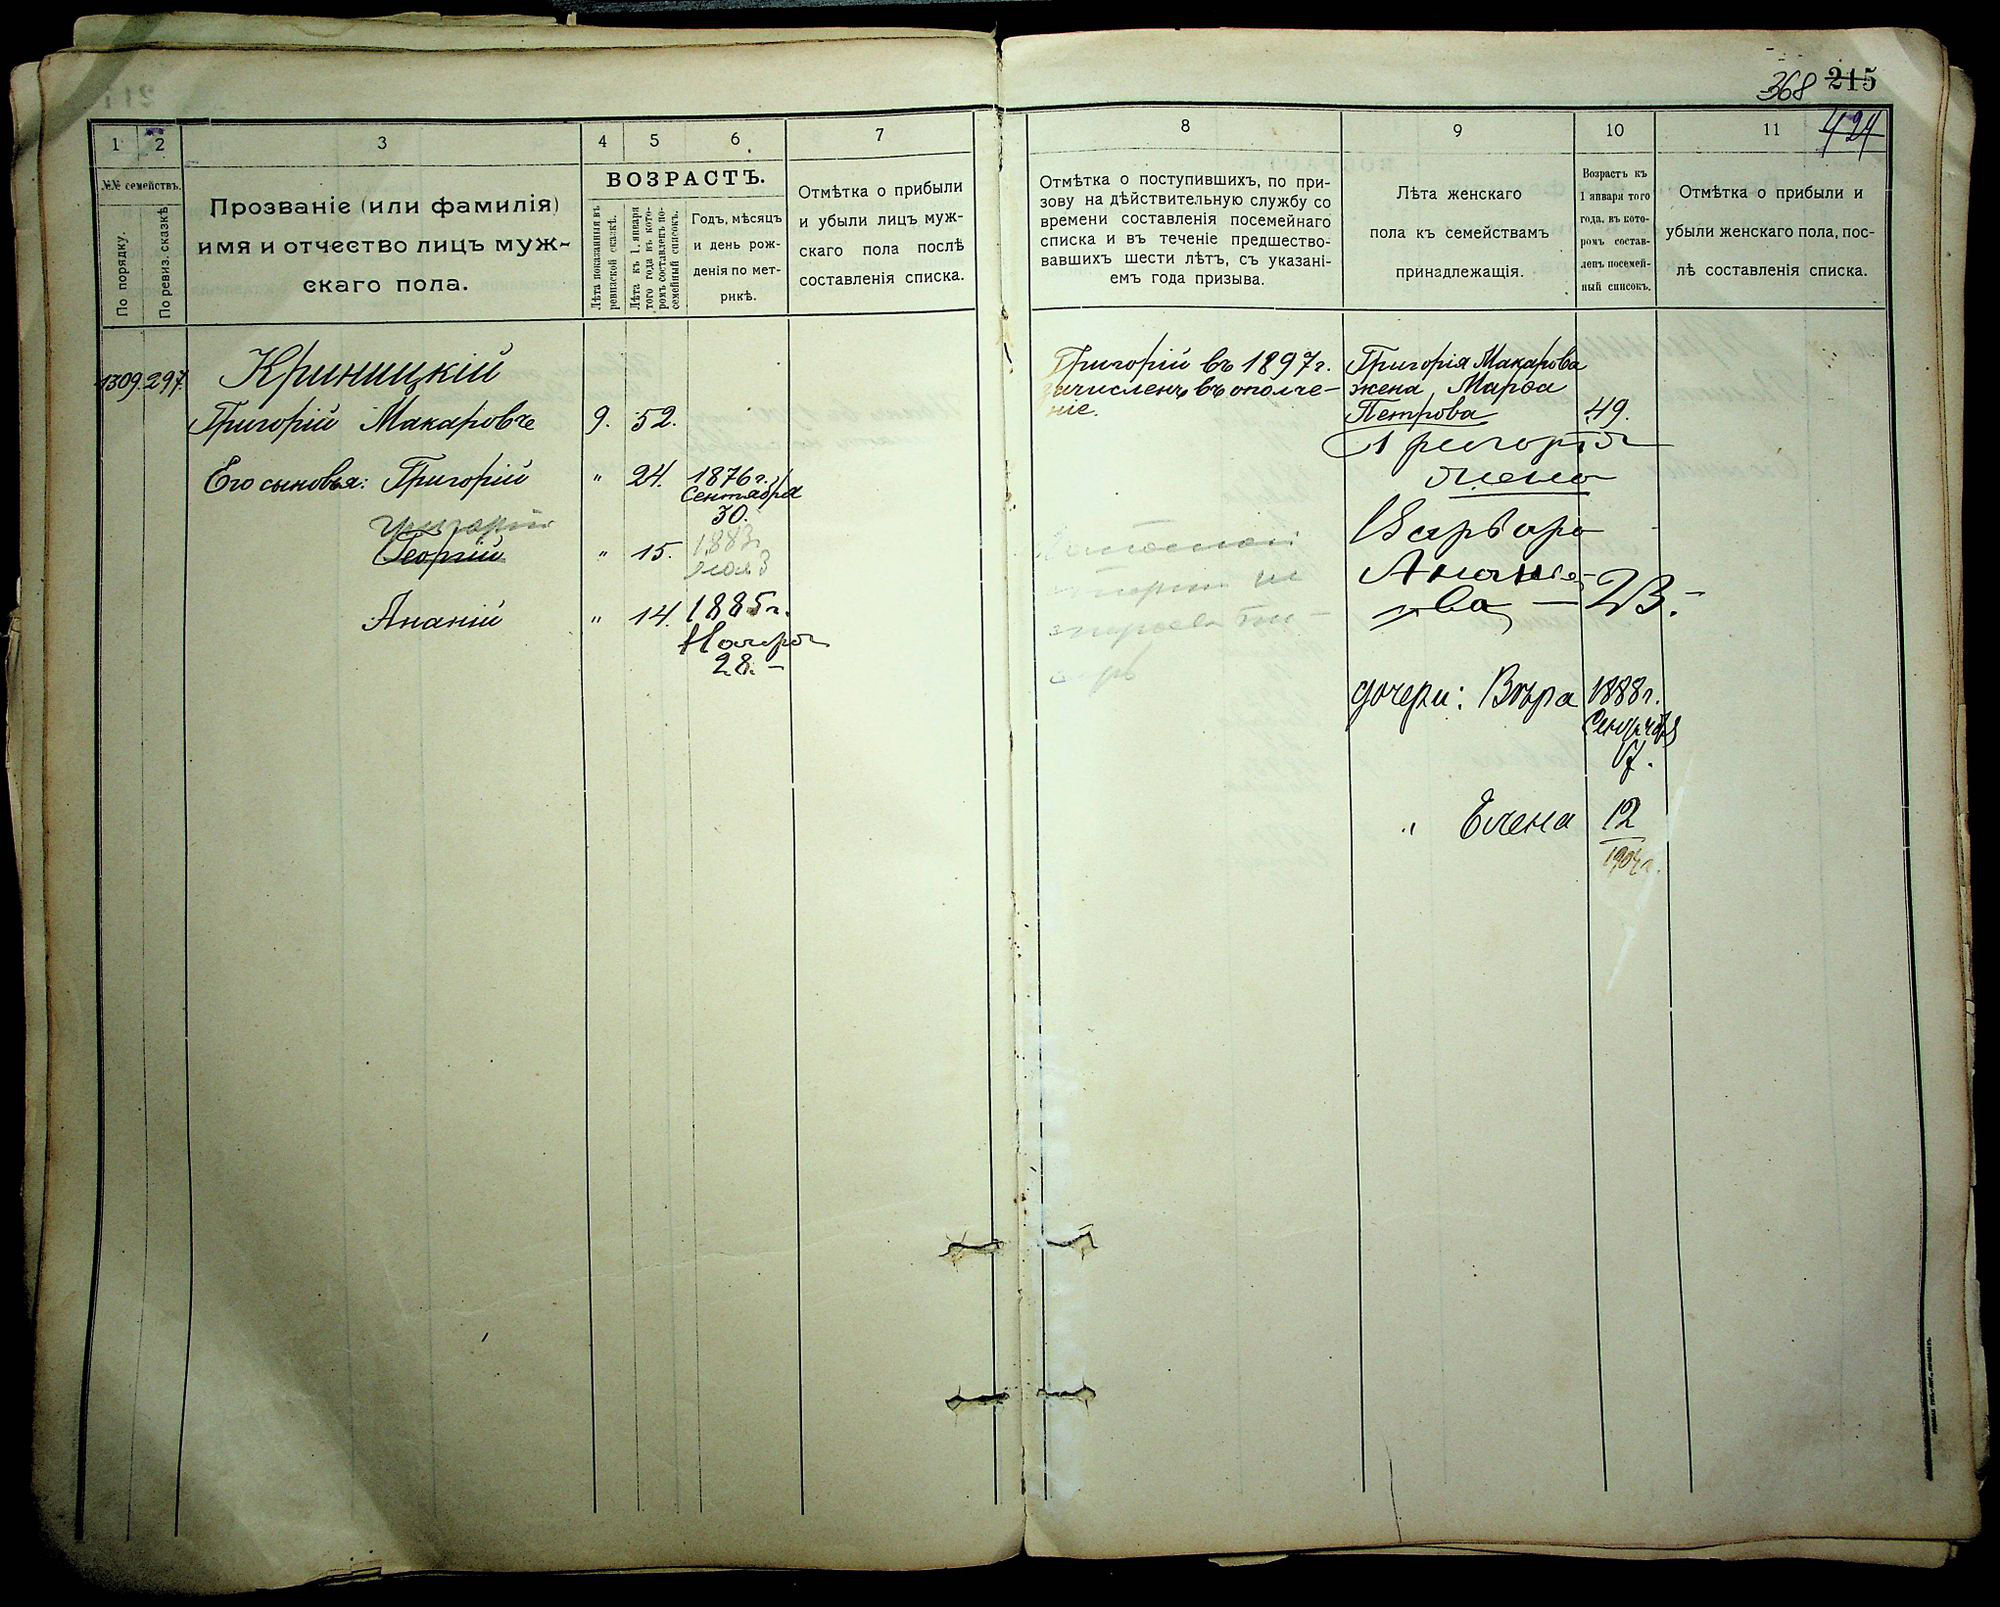 368 215
424
1
2
3
4
5
6
7
№№ семействъ.
По порядку.
По ревиз. сказкѣ
Прозваніе (или фамилія)
имя и отчество лицъ муж-
скаго пола.
ВОЗРАСТЪ.
Лѣта показанныя въ
ревизской сказкѣ.
Лѣта къ 1. января
того года въ кото-
ромъ составленъ по-
семейный списокъ.
Годъ, мѣсяцъ
и день рож-
денія по мет-
рикѣ.
Отмѣтка о прибыли
и убыли лицъ муж-
скаго пола послѣ
составленія списка.
1309. 297.
Криницкій
Григорій Макаровъ 9. 52.
Его сыновья: Григорій " 24. 1876 г.
Сентября
30.
Григорій
Георгій " 15. 1883 г.
Ананій " 14. 1885 г.
28.
8
9
10
11
Отмѣтка о поступившихъ, по при-
зову на дѣйствительную службу со
времени составленія посемейнаго
списка и въ теченіе предшество-
вавшихъ шести лѣтъ, съ указані-
емъ года призыва.
Лѣта женскаго
пола къ семействамъ
принадлежащія.
Возрастъ къ
1 января того
года, въ кото-
ромъ состав-
ленъ посемей-
ный списокъ.
Отмѣтка о прибыли и
убыли женскаго пола, пос-
лѣ составленія списка.
Григорій въ 1897 г.
зачисленъ въ ополче-
ніе.
Григорія Макарова
жена Марѳа
Петрова 49.
Григорія
жена
Варвара
Анание-
ва — 23.-
дочери: Вѣра 1888 г.
Сентября
17.
" Елена 12
1904 г.